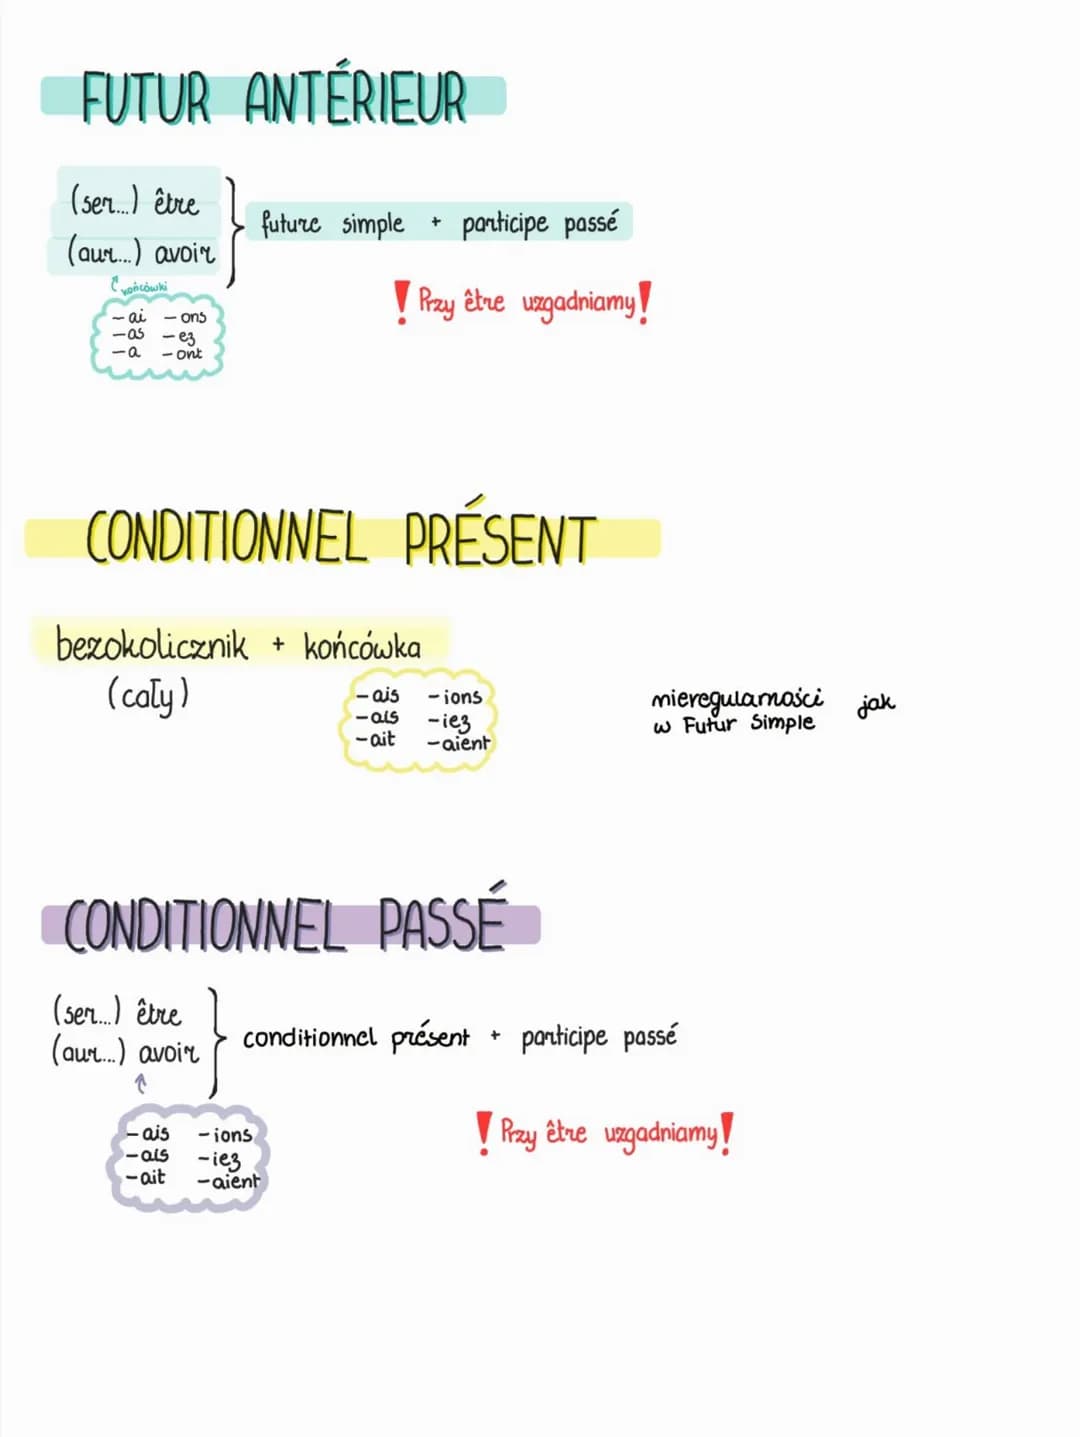 FUTUR ANTÉRIEUR
(ser...) être
(aur...) avoir
future simple + participe passé
końcówki
-ai -ons
-as -ez
-a -ont
! Przy être uzgadniamy!
CONDITIONNEL PRÉSENT
bezokolicznik + końcówka
(cały)
-ais -ions
-ais -iez
-ait -aient
nieregularności jak
w Futur Simple
CONDITIONNEL PASSÉ
(ser...) être
(aur...) avoir
conditionnel présent + participe passé
-ais -ions
-ais -iez
-ait -aient
! Przy être uzgadniamy!